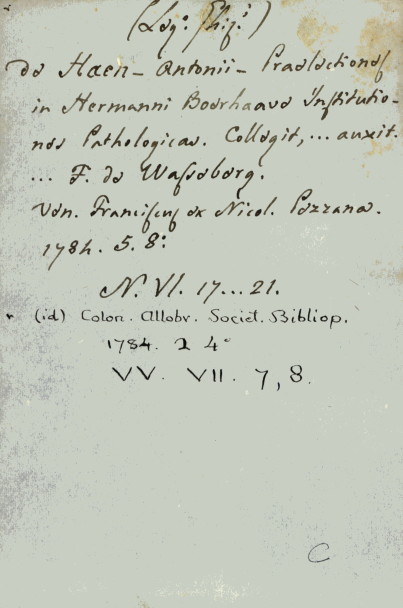 (Leg: Phiz:)
de Haen - Antonii - Praelectiones
in Hermanni Boerhaave Institutio-
nes Pathologicas. Collegit, ... auxit.
... F. de Wasseberg.
Ven. Franciscus ex Nicol. Pezzana.
1784. 5. 8:
N. VI. 17...21.
(id) Colon. Allobr. Societ. Bibliop.
1784. 2 4°
VV. VII. 7, 8.
C